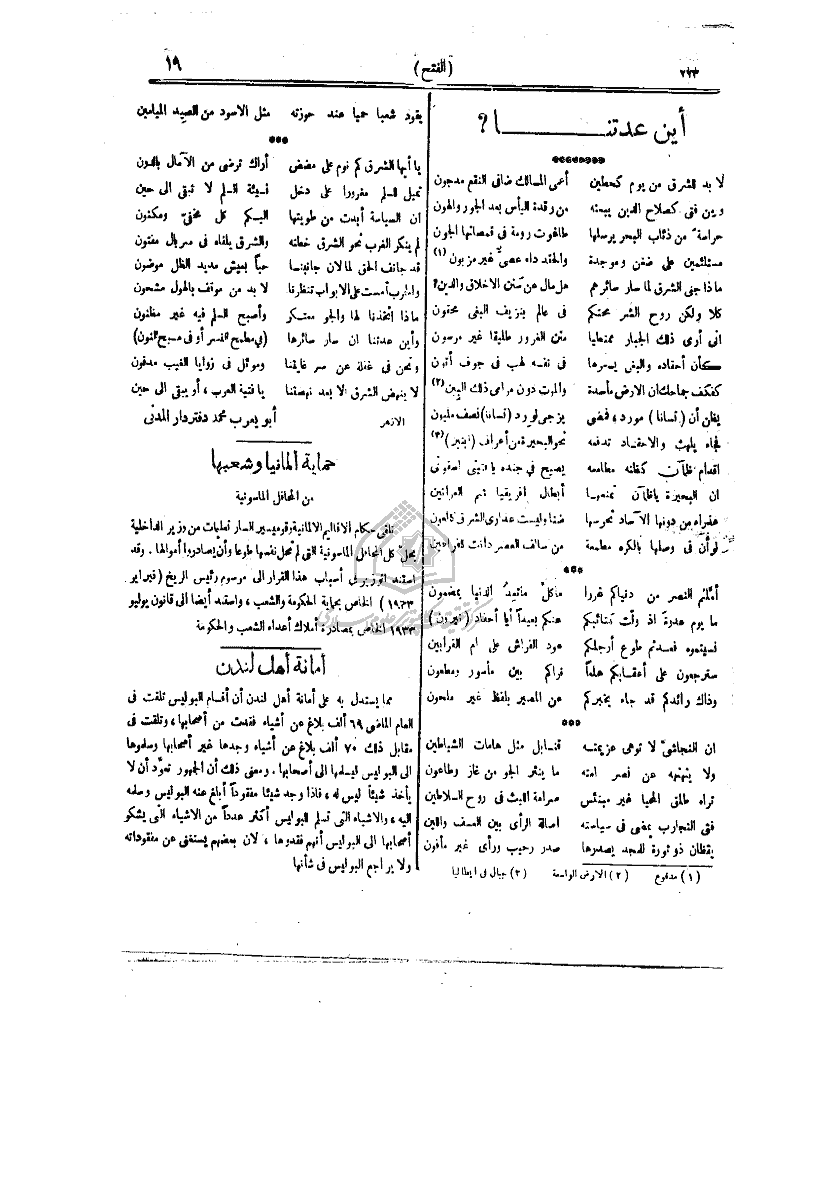 ١٩
(الفتح)
٢٢٣
أين عدتنـــا؟
لا بد للشرق من يوم كحطين أعمى المسالك ضافى النقع مدجون
وبين فتى كصلاح الدين يبعثه من رقدة اليأس بعد الجور والهون
حراسة من ذئاب البحر يرسلها طاغوت رومة فى قمصانها الجون
مستلئمين على ضغن وموجدة والحقد داء عصى غير مزبون (١)
ماذا جنى الشرق لما سار سائرهم هل مال عن سنن الاخلاق والدين؟
كلا ولكن روح الشر محتكم فى عالم بنزيف البغى محقون
انى أرى ذلك الجبار ممتطيا متن الغرور طليقا غير مرسون
كأن أحقاده والبغى يسعرها فى نفسه لهب فى جوف أتون
كفكف جماحك ان الارض مأسدة والموت دون مرامى ذلك البين (٢)
يظن أن (تسانا) مورد، فمضى يزجى لورد (تسانا) نصف مليون
فجاء يلهث والاحقاد تدفعه نحو البحيرة من أعراف (ابنين) (٣)
اقدام ظمآن كفلته مطامعه يصيح في جنده يا فتيتى اسقونى
ان البحيرة ياظمآن تمنعهـا أبطال افريقيا شم العرانين
عذراء من دونها الآساد تحرسها ضنا وليست عذارى الشرق كالعون
لو أن فى وصلها بالكره مطمعة من سالف العصر دانت للفراعين
***
أملكم النصر من دنياكم غررا ما كل ماتهيد الدنيا بمضمون
ما يوم عدوة اذ ولت كتائبكم عنكم بعيداً أيا أحفاد (نيرون)
نسيتموه فعدتم طوع أرجلكم عود الفراش على ام القرابين
سترجعون على أعقابكم هلعاً فراكم بين مأسور ومطعون
وذاك رائدكم قد جاء يخبركم عن المصير بلفظ غير ملحون
***
ان النجاشى لا توهى عزيمته قنابل مثل هامات الشياطين
ولا ينهنهه عن نصر امته ما ينثر الجو من غاز وطاعون
تراه طلق المحيا غير مبتئس صرامة الليث فى روح السلاطين
فتى التجارب يمضى فى سياسته اصالة الرأى بين العسف واللين
يقظان ذو ثورة للمجد يصدرها صدر رحيب ورأى غير مأفون
(١) مدفوع (٢) الارض الواسعة (٣) جبال فى ايطاليا
يقود شعبا حميا عند حوزته مثل الاسود من الصيد الميامين
***
يا أيها الشرق كم نوم على مضض أراك ترضى من الآمال بالدون
تميل للسلم مغرورا على دخل نسيئة السلم لا تبقى الى حين
ان السياسة أبدت من طويتها اليكم كل مخفى ومكنون
لم ينكر الغرب نحو الشرق خطته والشرق يلقاه فى سربال مفتون
قد جانف الحق لما لان جانبنا حباً بعيش مديد الظل موضون
والحرب أمست على الابواب تنظرنا لا بد من موقف بالهول مشحون
ماذا اتخذنا لها والجو معتكر وأصبح السلم فيه غير مظنون
وأين عدتنا ان سار سائرها (في مطمح النسر أو فى مسبح النون)
ونحن فى غفلة عن سر غايتنا وموئل فى زوايا الغيب مدفون
لا ينهض الشرق الا بعد نهضتنا يا فتية العرب، أو يبقى الى حين
الازهر أبو يعرب محمد دفتردار المدنى
حماية ألمانيا وشعبها
من المحافل الماسونية
تلقى حكام الاقاليم الالمانية وقوميسير السار تعليمات من وزير الداخلية
بحل كل المحافل الماسونية التى لم تحل نفسها طوعا وأن يصادروا أموالها. وقد
استند الوزير فى أسباب هذا القرار الى مرسوم رئيس الريخ (فبراير
١٩٣٣) الخاص بحماية الحكومة والشعب، واستند أيضا الى قانون يوليو
١٩٣٣ الخاص بمصادرة أملاك أعداء الشعب والحكومة
أمانة أهل لندن
مما يستدل به على أمانة أهل لندن أن أقسام البوليس تلقت فى
العام الماضى ٦٩ ألف بلاغ عن أشياء فقدت من أصحابها، وتلقت فى
مقابل ذلك ٧٠ ألف بلاغ عن أشياء وجدها غير أصحابها وسلموها
الى البوليس ليسلمها الى أصحابها. ومعنى ذلك أن الجمهور تعوّد أن لا
يأخذ شيئاً ليس له، فاذا وجد شيئا مفقوداً أبلغ عنه البوليس وسلمه
اليه، والاشياء التى تسلم البوليس أكثر عدداً من الاشياء التى يشكو
أصحابها الى البوليس أنهم فقدوها، لان بعضهم يستغنى عن مفقوداته
ولا يراجع البوليس فى شأنها